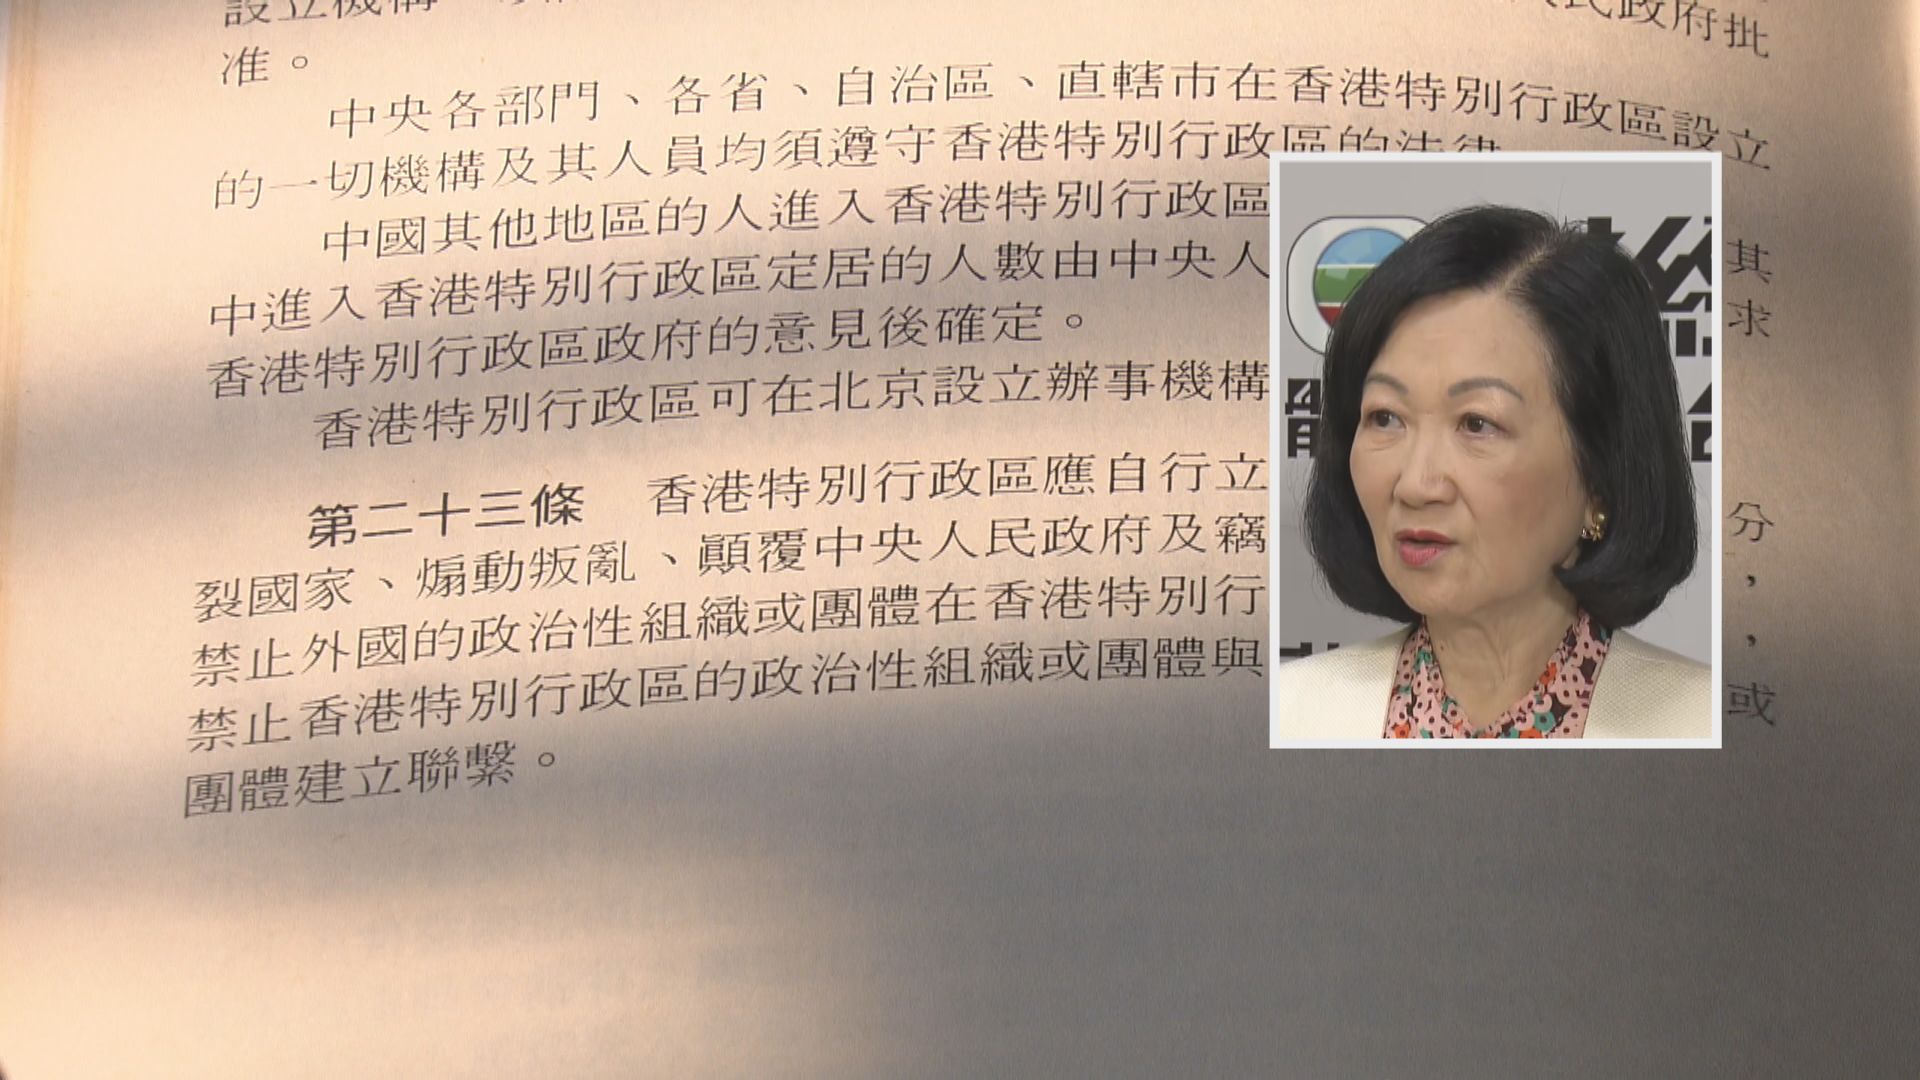 設立機構
民政府批
准。
中央各部門、各省、自治區、直轄市在香港特別行政區設立
的一切機構及其人員均須遵守香港特別行政區的法律
中國其他地區的人進入香港特別行政區 其
中進入香港特別行政區定居的人數由中央人 求
香港特別行政區政府的意見後確定。
香港特別行政區可在北京設立辦事機構
第二十三條 香港特別行政區應自行立 分
裂國家、煽動叛亂、顛覆中央人民政府及竊 ，
禁止外國的政治性組織或團體在香港特別行 ，
禁止香港特別行政區的政治性組織或團體與 或
團體建立聯繫。